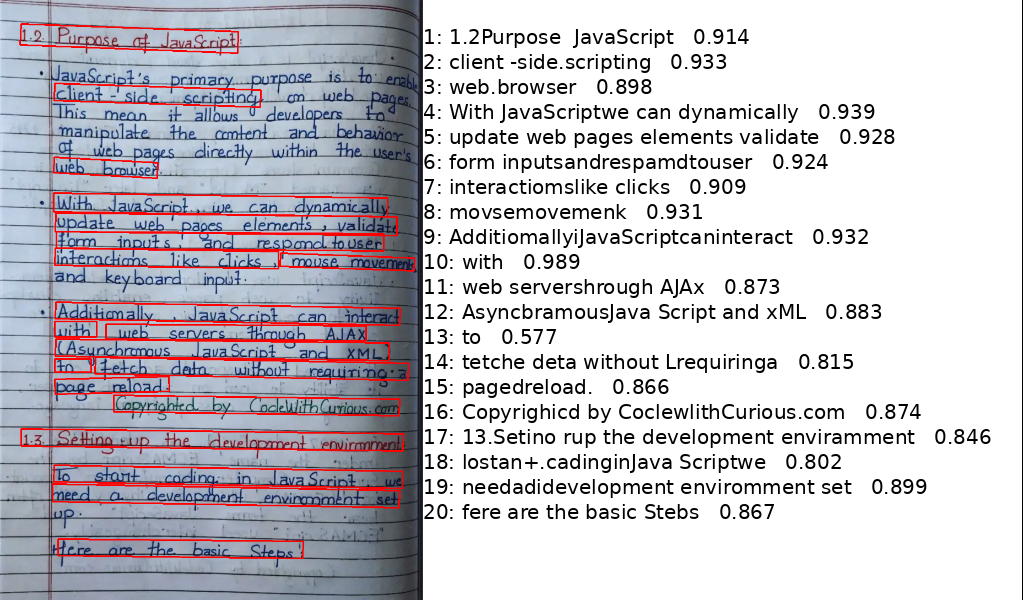 1.2. Purpose of JavaScript
• JavaScript's primary purpose is to enable
client-side scripting on web pages.
This mean it allows developers to
manipulate the content and behavior
of web pages directly within the user's
web browser.
• With JavaScript, we can dynamically
update web pages elements, validate
form inputs, and respond to user
interactions like clicks, mouse movement,
and keyboard input.
• Additionally, JavaScript can interact
with web servers through AJAX
(Asynchronous JavaScript and XML)
to fetch data without requiring a
page reload.
Copyrighted by CodeWithCurious.com
1.3. Setting up the development environment:
To start coding in JavaScript, we
need a development environment set
up.
Here are the basic Steps:
1: 1.2Purpose JavaScript 0.914
2: client -side.scripting 0.933
3: web.browser 0.898
4: With JavaScriptwe can dynamically 0.939
5: update web pages elements validate 0.928
6: form inputsandrespamdtouser 0.924
7: interactiomslike clicks 0.909
8: movsemovemenk 0.931
9: AdditiomallyiJavaScriptcaninteract 0.932
10: with 0.989
11: web servershrough AJAx 0.873
12: AsyncbramousJava Script and xML 0.883
13: to 0.577
14: tetche deta without Lrequiringa 0.815
15: pagedreload. 0.866
16: Copyrighicd by CoclewlithCurious.com 0.874
17: 13.Setino rup the development enviramment 0.846
18: lostan+.cadinginJava Scriptwe 0.802
19: needadidevelopment enviromment set 0.899
20: fere are the basic Stebs 0.867